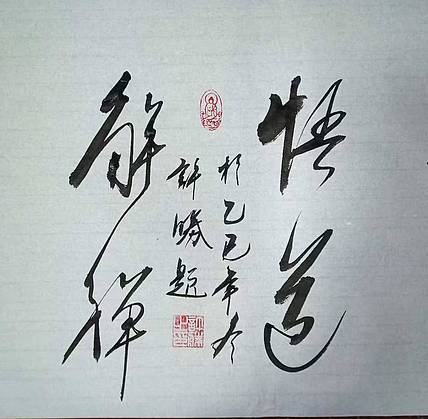 悟道
解禅
於乙巳年冬
許勝題